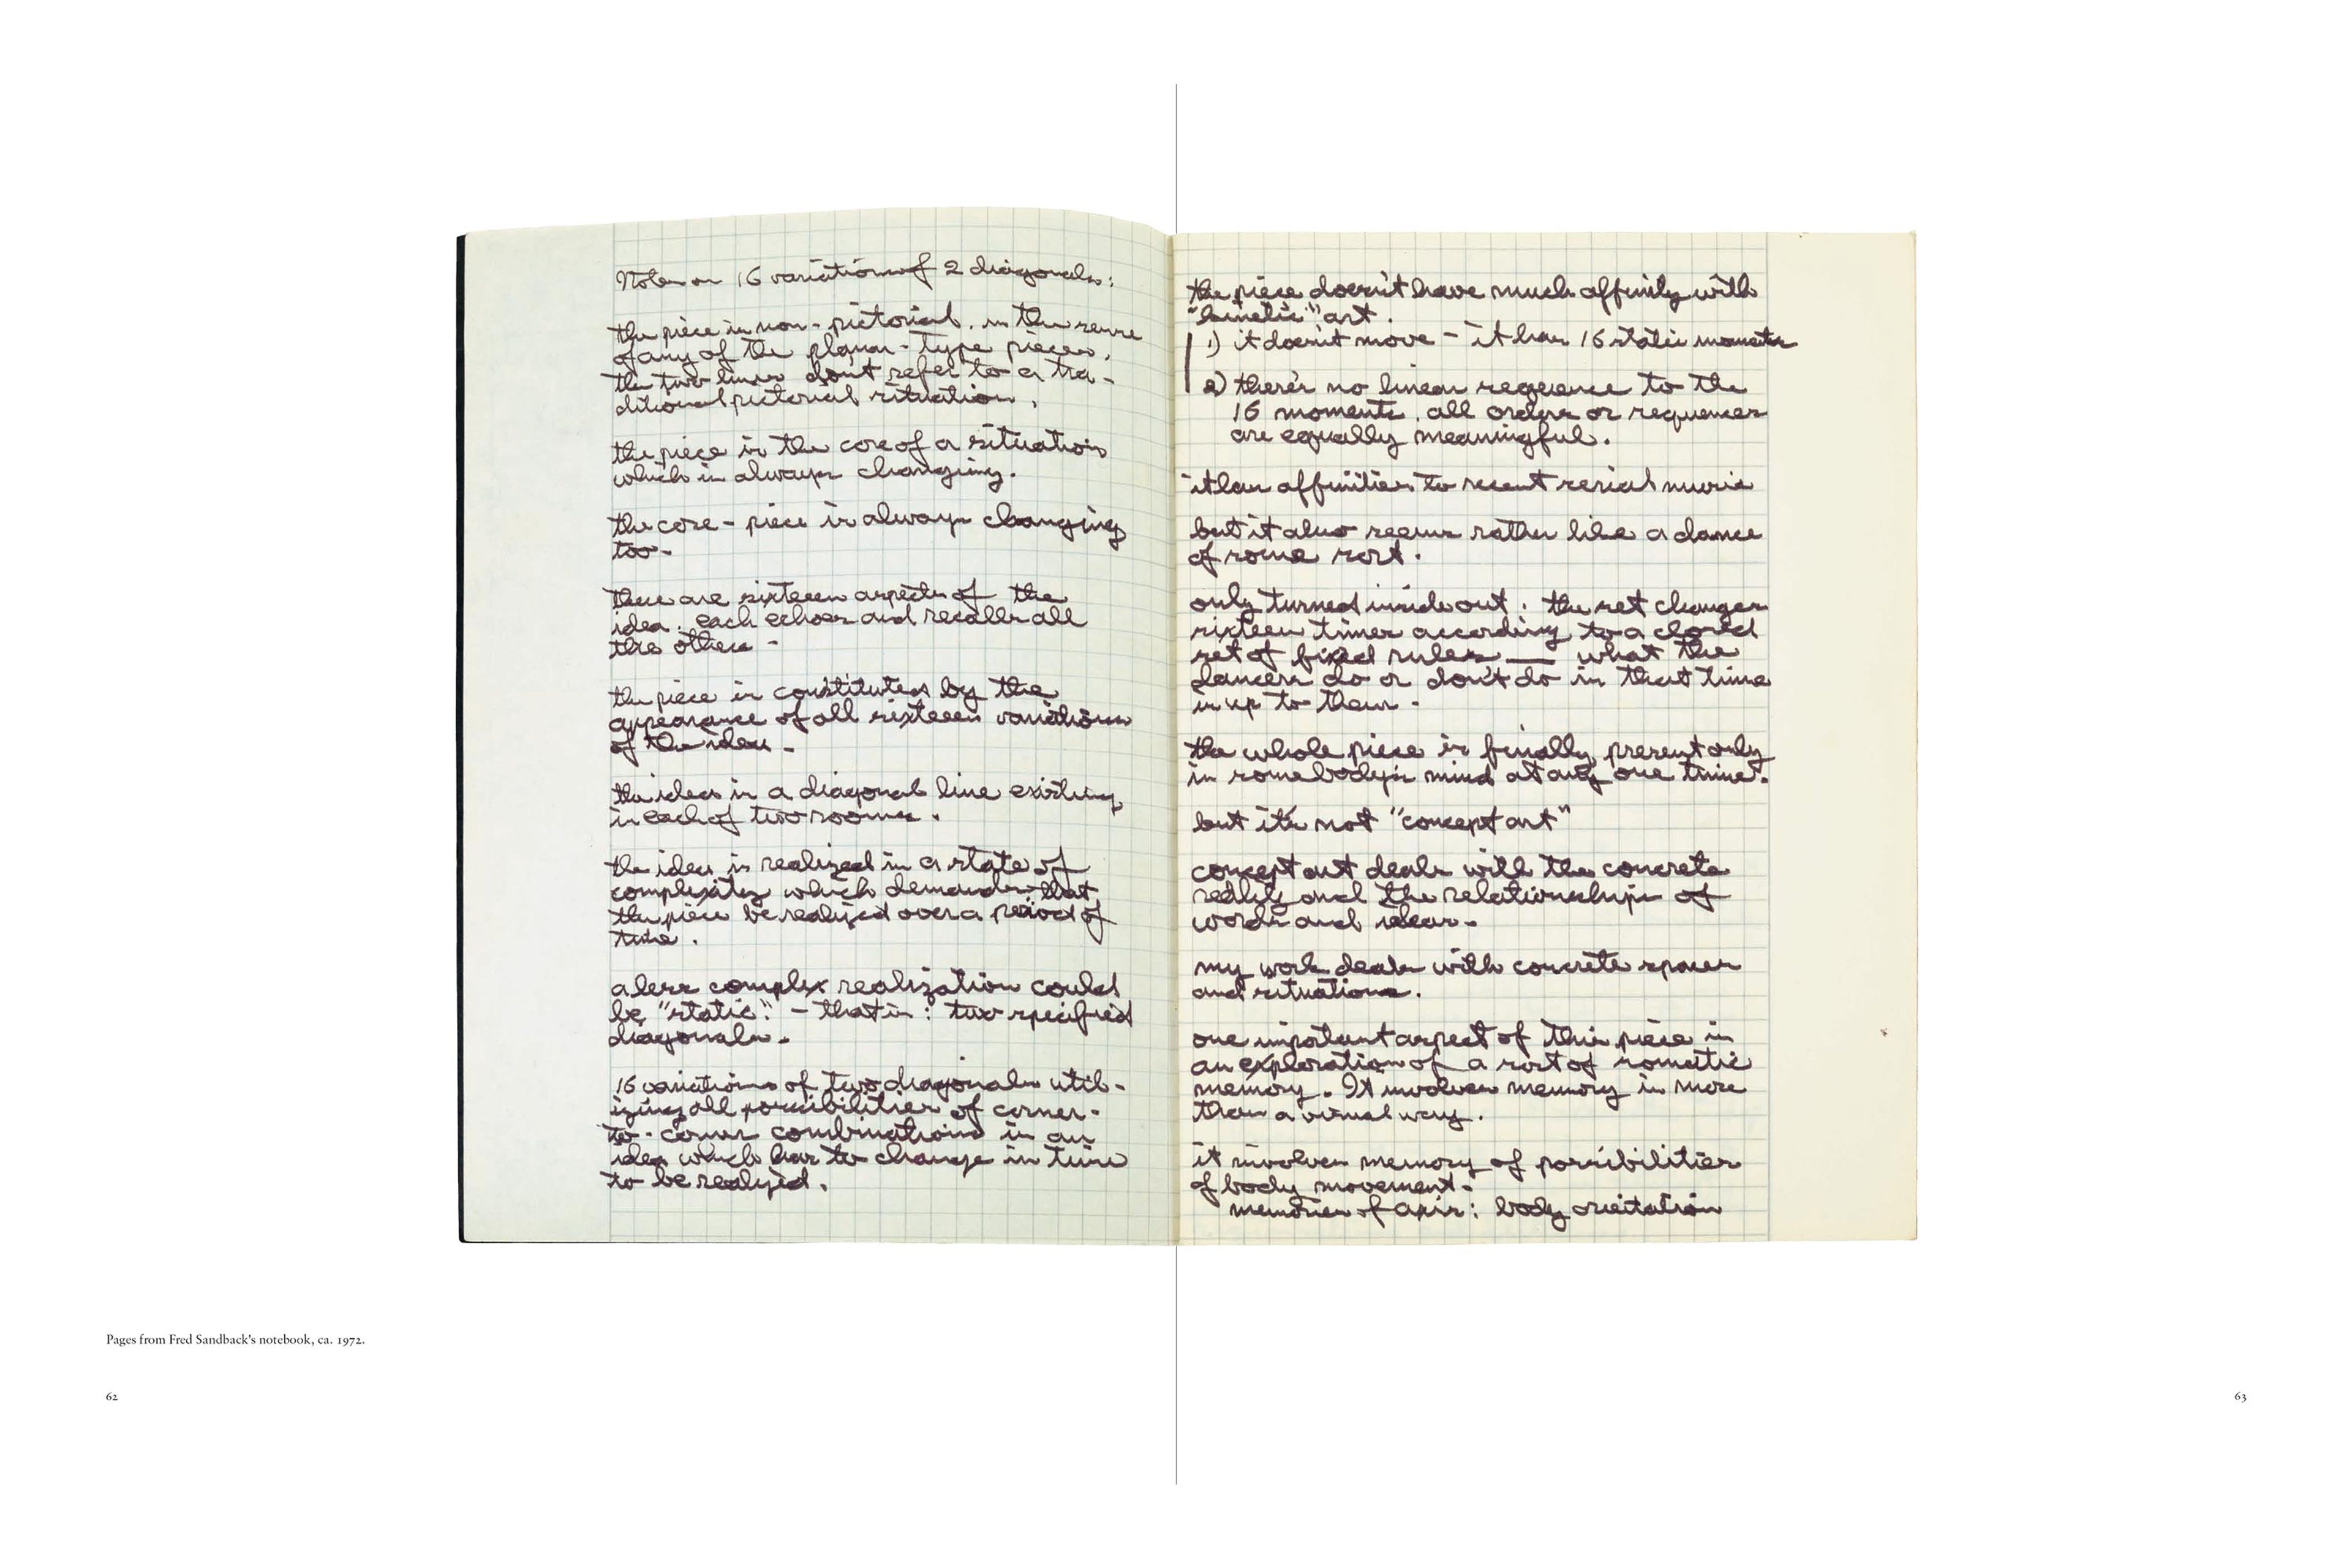 Notes on 16 variations of 2 diagonals:
the piece is non-pictorial. in the sense
of any of the planar-type pieces.
the two lines don't refer to a tra-
ditional pictorial situation.
the piece is the core of a situation
which is always changing.
the core-piece is always changing
too-
there are sixteen aspects of the
idea. each echoes and recalls all
the others -
the piece is constituted by the
appearance of all sixteen variations
of the idea -
the idea is a diagonal line existing
in each of two rooms.
the idea is realized in a state of
complexity which demands that
the piece be realized over a period of
time.
a less complex realization could
be "static" - that is: two specified
diagonals -
16 variations of two diagonals util-
izing all possibilities of corner-
to-corner combinations is an
idea which has to change in time
to be realized.
the piece doesn't have much affinity with
"kinetic" art.
1) it doesn't move - it has 16 static moments
2) there's no linear sequence to the
16 moments. all orders or sequences
are equally meaningful.
it has affinities to recent serial music
but it also seems rather like a dance
of some sort.
only turned inside out. the set changes
sixteen times according to a closed
set of fixed rules — what the
dancers do or don't do in that time
is up to them -
the whole piece is finally present only
in somebody's mind at any one time.
but it's not "concept art"
concept art deals with the concrete
reality and the relationships of
words and ideas -
my work deals with concrete spaces
and situations.
one important aspect of this piece is
an exploration of a sort of somatic
memory. It involves memory in more
than a visual way.
it involves memory of possibilities
of body movement -
memories of axis: body orientation
Pages from Fred Sandback's notebook, ca. 1972.
62
63